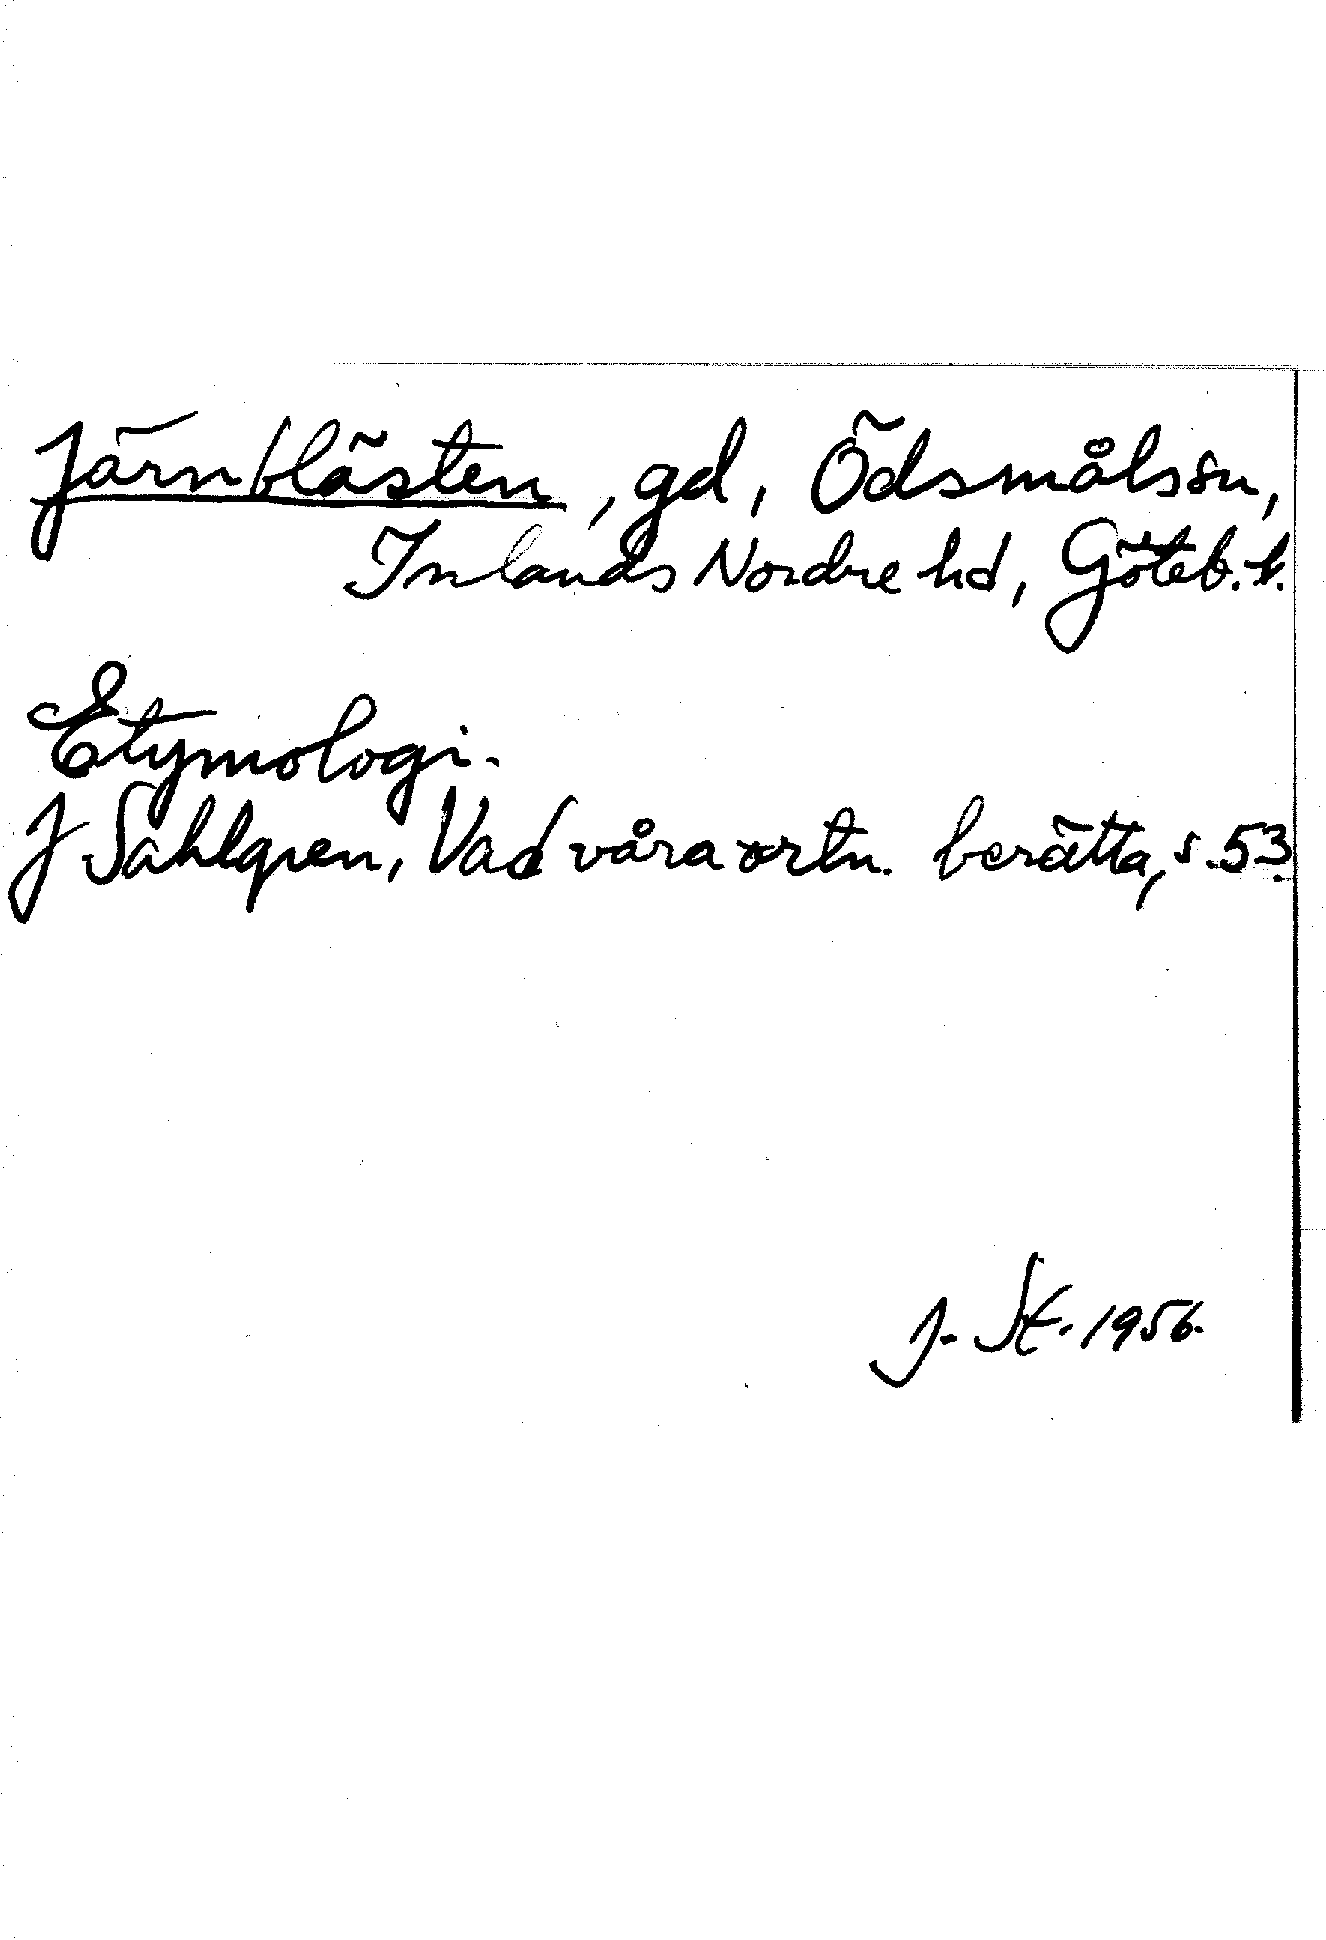 Järnblästen, gd, Ödsmåls sn,
Inlands Nordre hd, Göteb. l.
Etymologi.
J Sahlgren, Vad våra ortn. berätta, s. 53.
J. St. 1956.